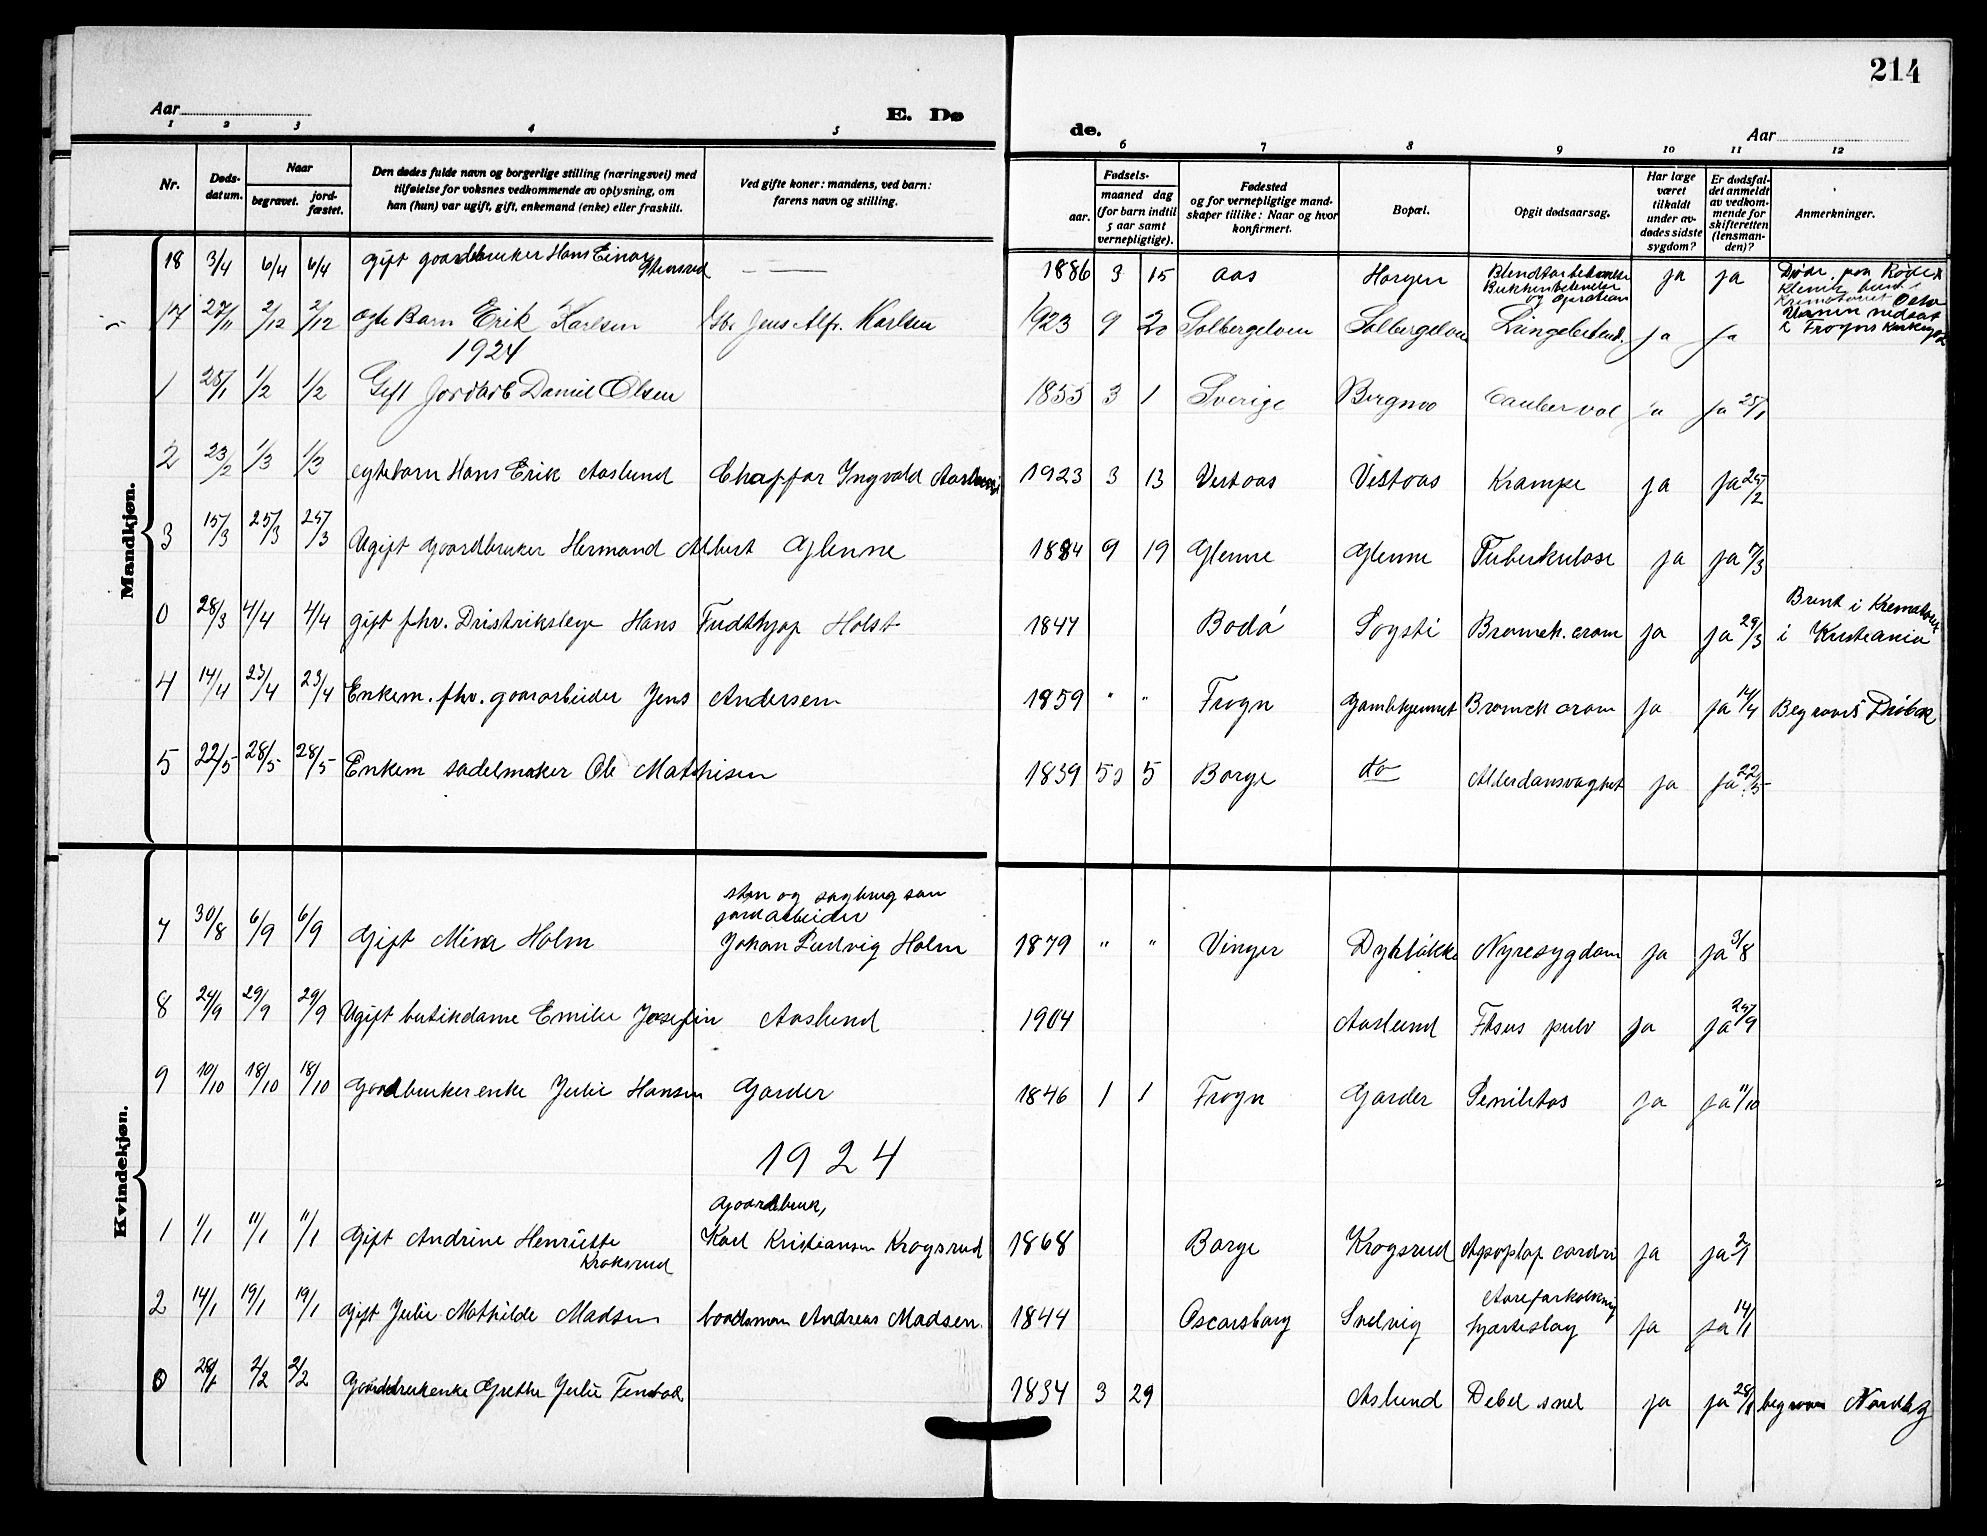 214
Aar
E. Dø
de.
Aar
1 2 3 4 5 6 7 8 9 10 11 12
Nr.
Døds-
datum.
Naar
begravet.
jord-
fæstet.
Den dødes fulde navn og borgerlige stilling (næringsvei) med
tilføielse for voksnes vedkommende av oplysning, om
han (hun) var ugift, gift, enkemand (enke) eller fraskilt.
Ved gifte koner: mandens, ved barn:
farens navn og stilling.
Fødsels-
aar.
maaned dag
(for barn indtil
5 aar samt
vernepligtige).
Fødested
og for vernepligtige mand-
skaper tillike: Naar og hvor
konfirmert.
Bopæl.
Opgit dødsaarsag.
Har læge
været
tilkaldt
under av-
dødes sidste
sygdom?
Er dødsfal-
det anmeldt
av vedkom-
mende for
skifteretten
(lensman-
den)?
Anmerkninger.
Mandkjøn.
18 3/4 6/4 6/4 gift gaardbruker Hans Einar — 1886 3 15 Aas Horgen ja ja
og operation
17 27/11 2/12 2/12 Barn Erik Karlsen Jens Alfr. Karlsen 1923 9 20 Solbergelven Solbergelven ja ja
1924
1 25/1 1/2 1/2 Gift Daniel Olsen 1855 3 1 Sverige Bergmo ja ja 25/1
2 23/2 1/3 1/3 egtebarn Hans Erik Aaslund Chaffør Ingvald Aaslund 1923 3 13 Vestaas Vestaas Krampe ja ja 25/2
3 15/3 25/3 25/3 Ugift gaardbruker Hermand Albert Glenne 1884 9 19 Glenne Glenne Tuberkulose ja ja 17/3
0 28/3 4/4 4/4 gift fhv. Distriktslege Hans Holst 1847 Bodø Sogsti ja ja 29/3 Brent i
i Kristiania
4 14/4 23/4 23/4 Enkem. fhv. gaararbeider Jens Andersen 1859 " " Frogn ja ja 14/4 Begravet Drøbak
5 22/5 28/5 28/5 Enkem sadelmaker Ole Mathisen 1839 5 Borge do Alderdomsvaghet ja ja 22/5
Kvindekjøn.
sten og sagbrug san
jordarbeider
7 30/8 6/9 6/9 Gift Mina Holm Johan Ludvig Holm 1879 " " Vinger Dyrløkke Nyresygdom ja ja 3/8
8 24/9 29/9 29/9 Ugift butikdame Emilie Josefin Aaslund 1904 Aaslund Ftisus pulv ja ja 25/9
9 10/10 18/10 18/10 Gaardbrukerenke Julie Hansen Garder 1846 1 1 Frogn Garder Senilitas ja ja 11/10
1924
Gaardbruk,
1 1/1 11/1 11/1 Gift Andrine Henriette Karl Kristiansen Krogsrud 1868 Borge Krogsrud ja ja 2/1
Kroksrud
Aareforkalkning
2 14/1 19/1 19/1 gift Julie Mathilde Madsen baadsman Andreas Madsen. 1844 Oscarsborg Snelvig hjarteslag ja ja 14/1
0 28/1 2/2 2/2 Grethe Julie 1834 3 29 Aslund ja ja 28/1 begraven Nordby